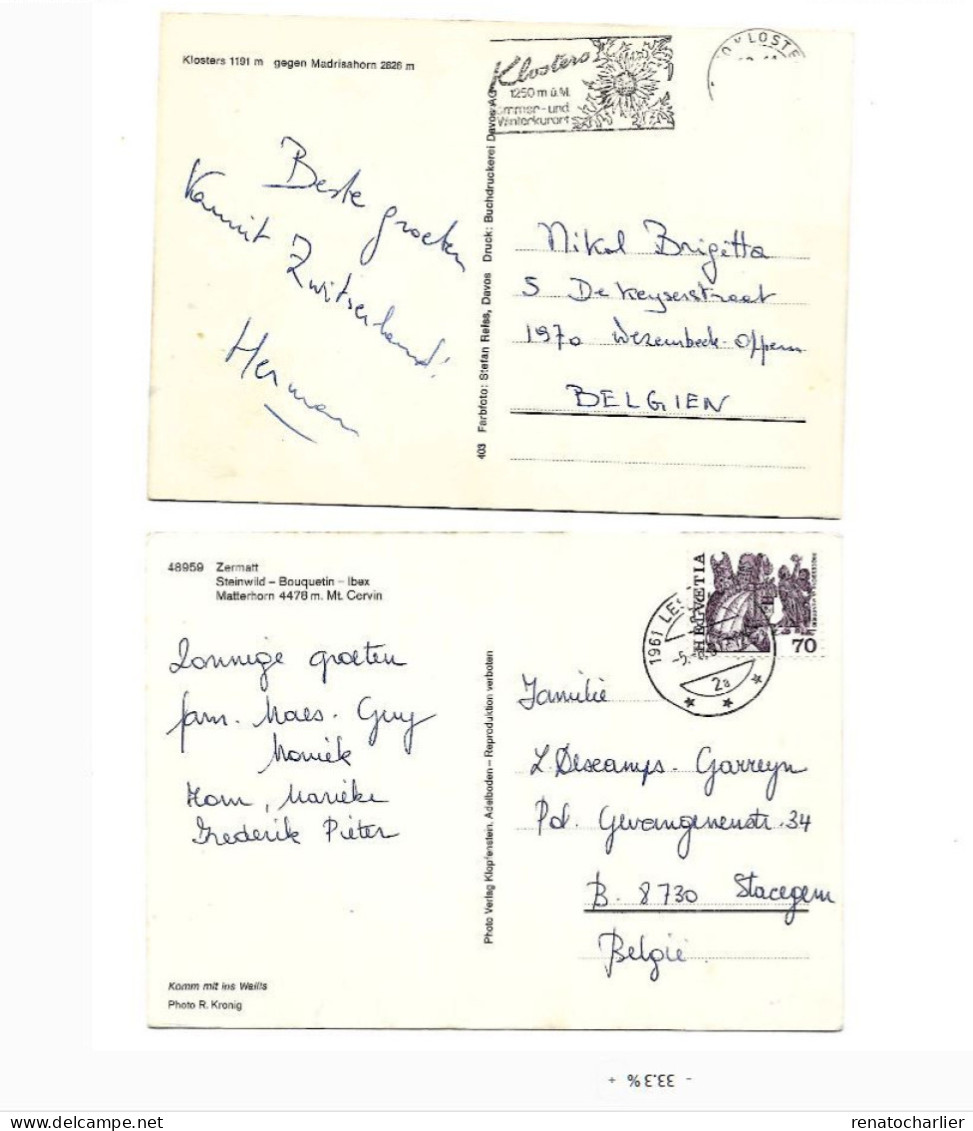 Klosters 1191 m gegen Madrisahorn 2826 m
Klosters
1250 m ü.M.
ommer- und
Winterkurort
KLOSTE
Beste groeten
Vanuit Zwitserland!
Herman
403 Farbfoto: Stefan Reiss, Davos Druck: Buchdruckerei Davos AG
Nikol Brigitta
5 De Keyserstraat
1970 Wezembeek-Oppem
BELGIEN
48959 Zermatt
Steinwild – Bouquetin – Ibex
Matterhorn 4478 m. Mt. Cervin
Zonnige groeten
fam. Maes. Guy
Moniek
Tom, Marieke
Frederik Pieter
Komm mit ins Wallis
Photo R. Kronig
Photo Verlag Klopfenstein, Adelboden – Reproduktion verboten
HELVETIA
70
1961 LES
2a
Familie
L Descamps-Garreyn
Pol. Gevangenenstr. 34
B. 8730 Stacegem
België
- 33.3 % +
renatocharlier